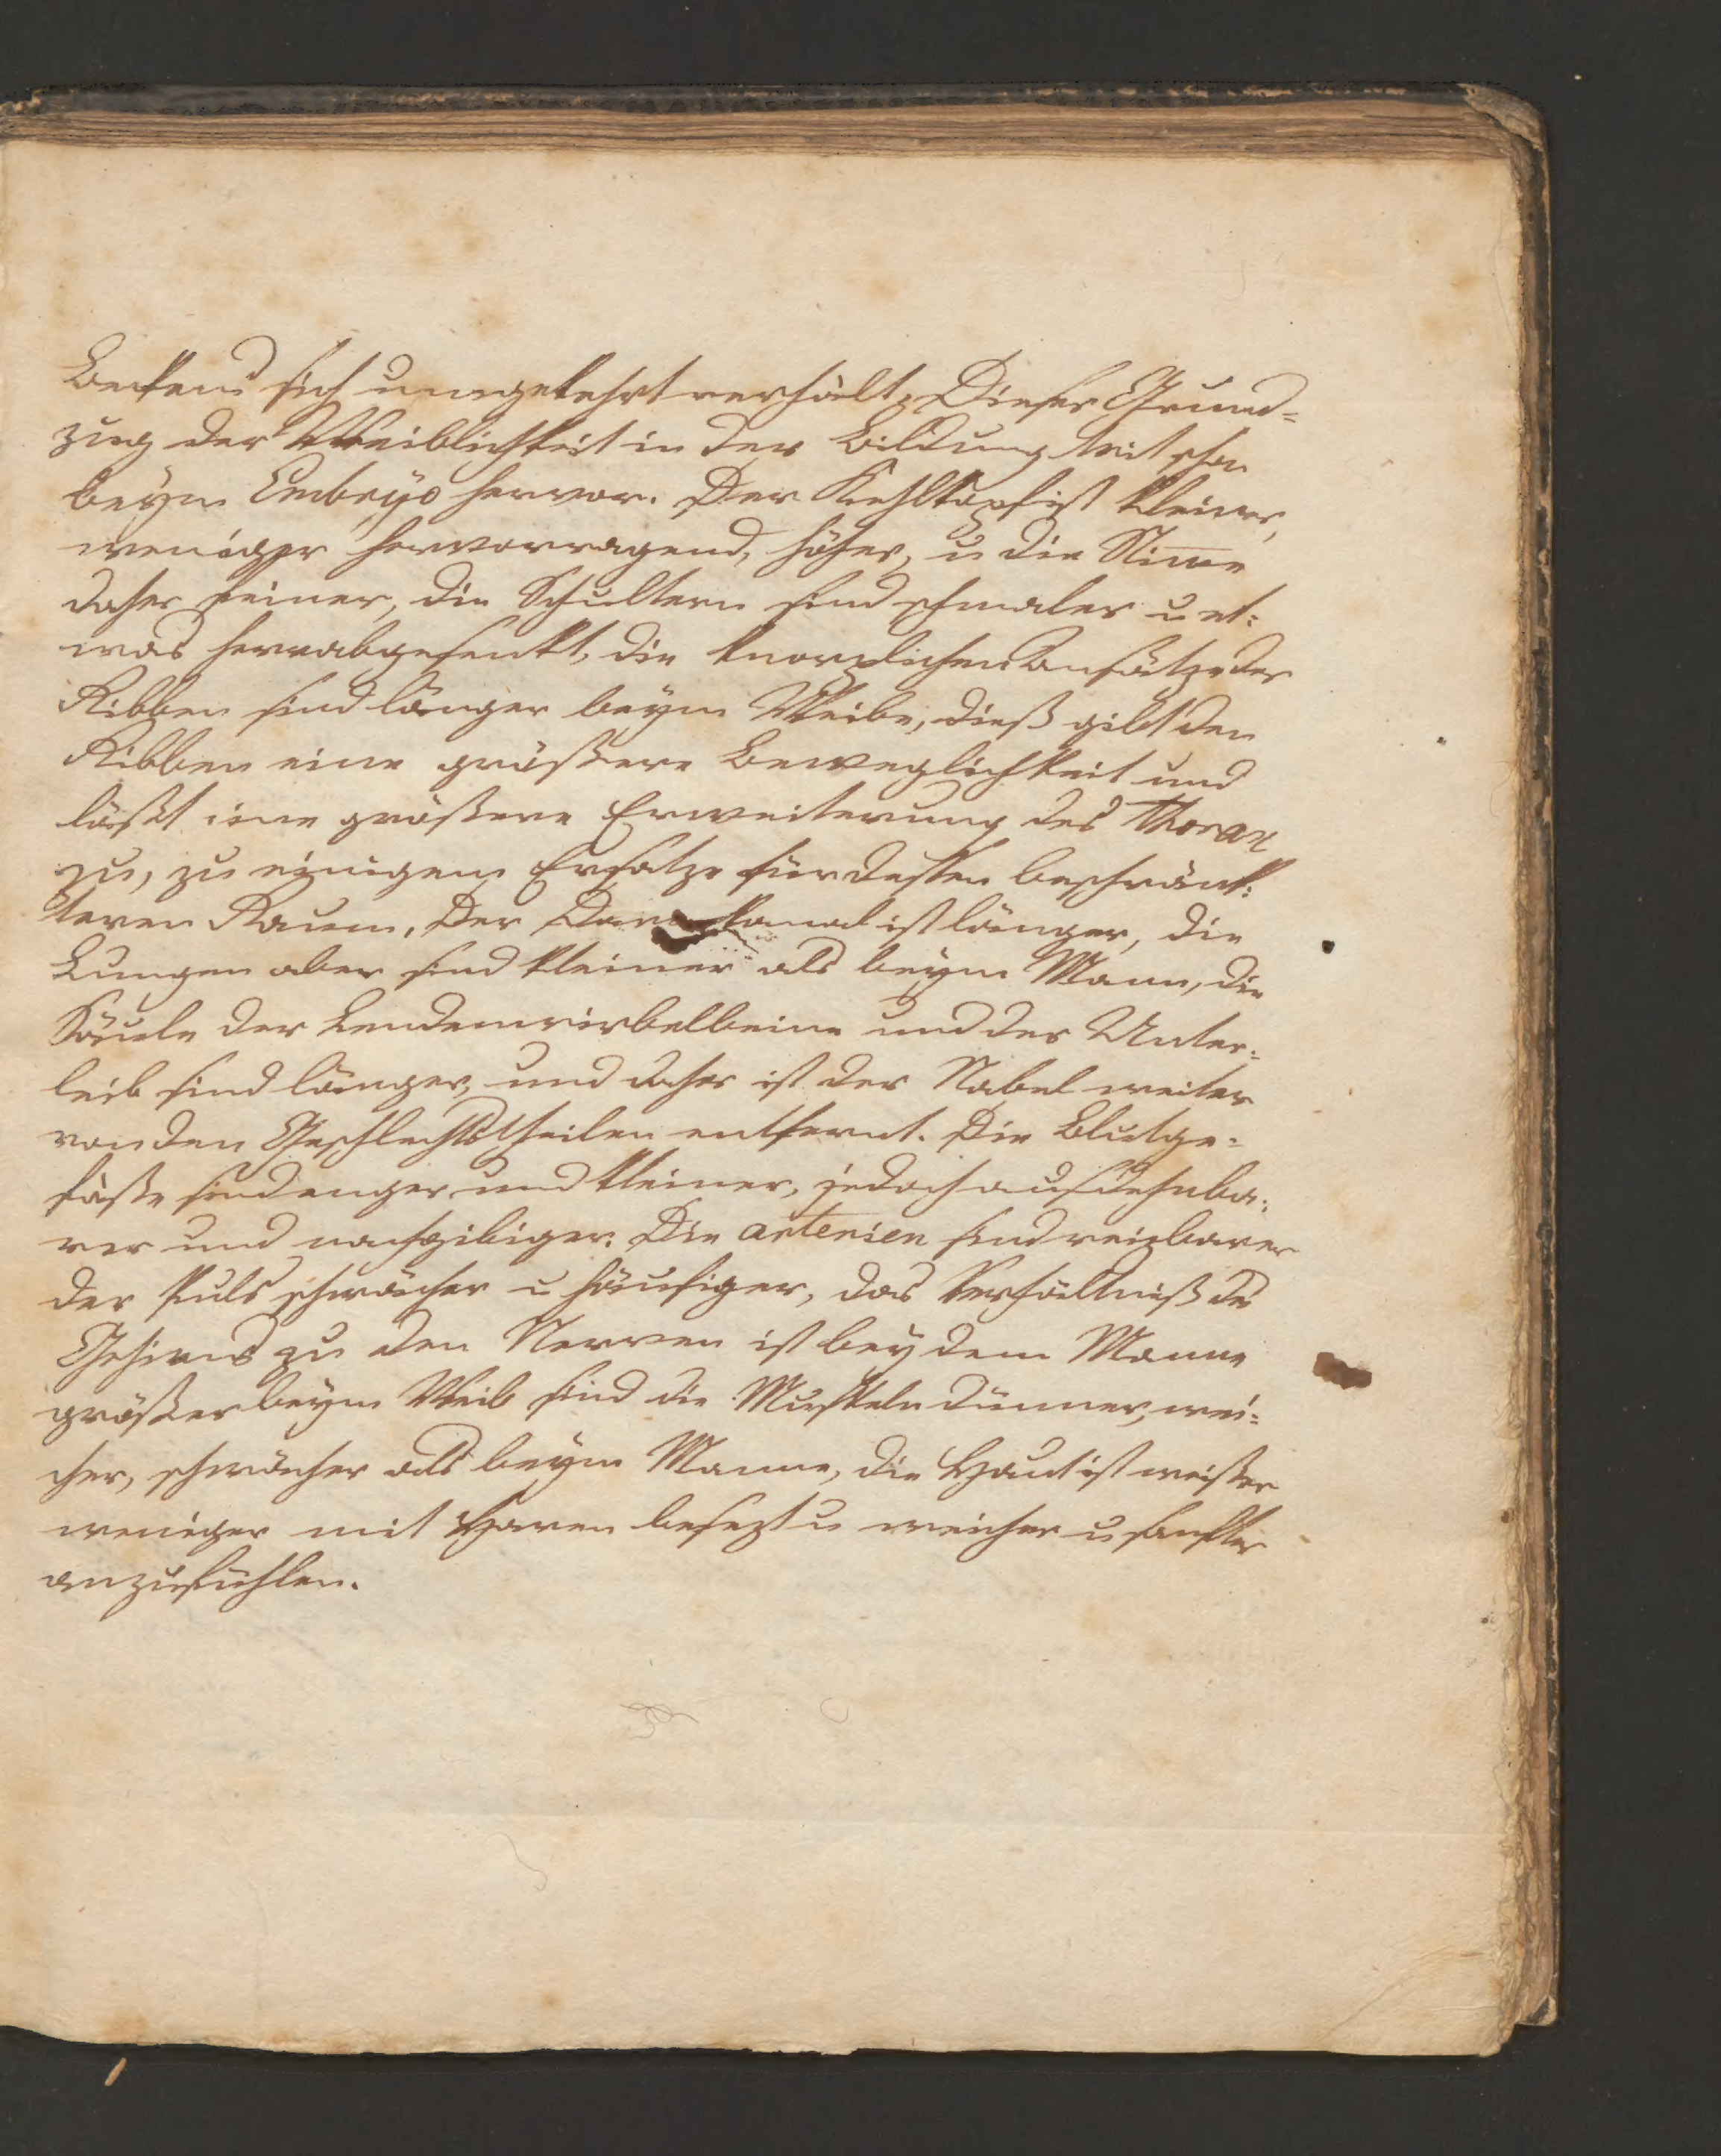 Beckens sich umgekehrt verhält. Dieser Grund-
zug der Weiblichkeit in der Bildung trit schon
beym Embryo hervor. Der Kehlkopf ist kleiner,
weniger hervorragend, höher, u die Stimme
daher feiner, die Schultern sind schmaler u et:
was herrabgesenkt, die knorplichen Ansätze der
Ribben sind länger beym Weibe, dieß gibt den
Ribben eine größere Beweglichkeit und
läßt eine größere Erweiterung des Thorax
zu, zu einigem Ersatze für dessen beschränk:
teren Raum. Der Darmkanal ist länger, die
Lungen aber sind kleiner als beym Mann, die
Säule der Lendenwirbelbeine und der Unter:
leib sind länger, und daher ist der Nabel weiter
von den Geschlechtstheilen entfernt. Die Blutge-
fäße sind enger und kleiner, jedoch ausdehnba:
rer und nachgibiger. Die arterien sind reizbarer
der Puls schwächer u häufiger, das Verhältniß des
Gehirns zu den Nerven ist bey dem Manne
größer beym Weib sind die Muskeln dünner, wei:
cher, schwächer als beym Manne, die Haut ist weißer
weniger mit Haren besezt u weicher u sanfter
anzufühlen.